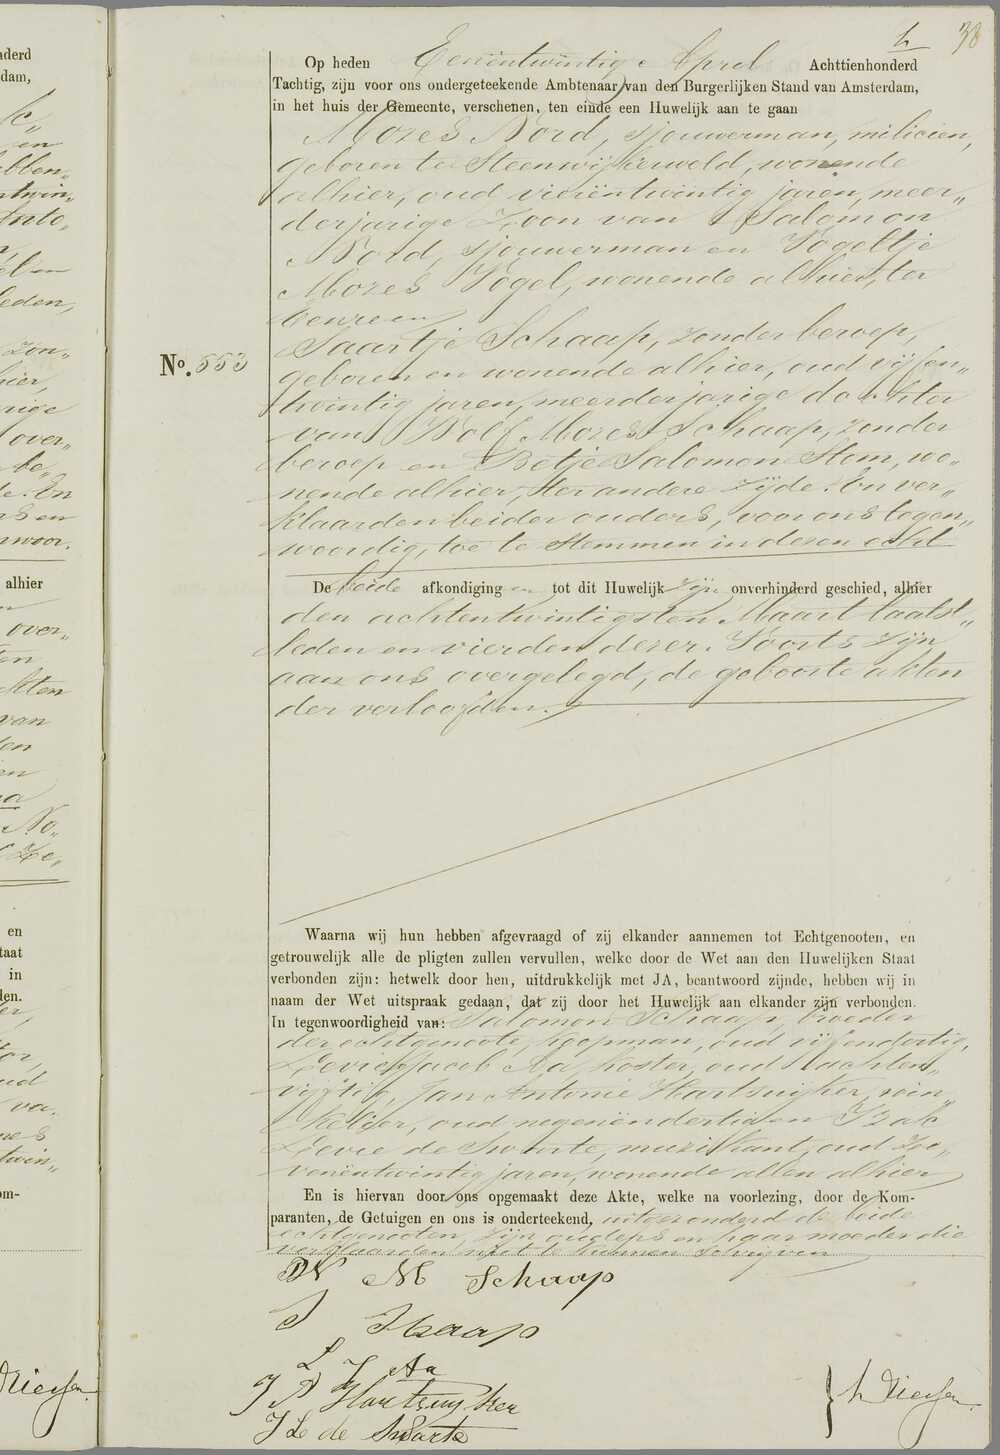 h 38
Op heden Eenëntwintig April Achttienhonderd
Tachtig, zijn voor ons ondergeteekende Ambtenaar van den Burgerlijken Stand van Amsterdam,
in het huis der Gemeente, verschenen, ten einde een Huwelijk aan te gaan
Mozes Nord, sjouwerman, milicien,
geboren te Steenwijkerwold, wonende
alhier, oud vierëntwintig jaren, meer„
derjarige Zoon van Salomon
Nord, sjouwerman en Vogeltje
Mozes Vogel, wonende alhier, ter
eenre en
Saartje Schaap, zonder beroep,
No. 553
geboren en wonende alhier, oud vijfen„
twintig jaren, meerderjarige dochter
van Wolf Mozes Schaap, zonder
beroep en Betje Salomon Stom, wo„
nende alhier, ter andere zijde. En ver„
klaarden beider ouders, voor ons tegen„
woordig, toe te stemmen in dezen echt
De beide afkondigingen tot dit Huwelijk zijn onverhinderd geschied, alhier
den achtentwintigsten Maart laatst„
leden en vierden dezer. Voorts zijn
aan ons overgelegd, de geboorte akten
der verloofden.
Waarna wij hun hebben afgevraagd of zij elkander aannemen tot Echtgenooten, en
getrouwelijk alle de pligten zullen vervullen, welke door de Wet aan den Huwelijken Staat
verbonden zijn: hetwelk door hen, uitdrukkelijk met JA, beantwoord zijnde, hebben wij in
naam der Wet uitspraak gedaan, dat zij door het Huwelijk aan elkander zijn verbonden.
In tegenwoordigheid van: Salomon Schaap, broeder
der echtgenoote, koopman, oud vijfendertig,
Levie Jacob Aa, koster, oud achten„
vijftig, Jan Antonie Hartsuijker, win„
kelier, oud negenëndertig en Izak
Levie de Swarte, muzikant, oud ze„
venëntwintig jaren, wonende allen alhier
En is hiervan door ons opgemaakt deze Akte, welke na voorlezing, door de Kom-
paranten, de Getuigen en ons is onderteekend, uitgezonderd de beide
echtgenooten, zijn ouders en haar moeder die
verklaarden niet te kunnen schrijven
W M Schaap
S Schaap
L J Aa
J A Hartsuyker
J L de Swarte